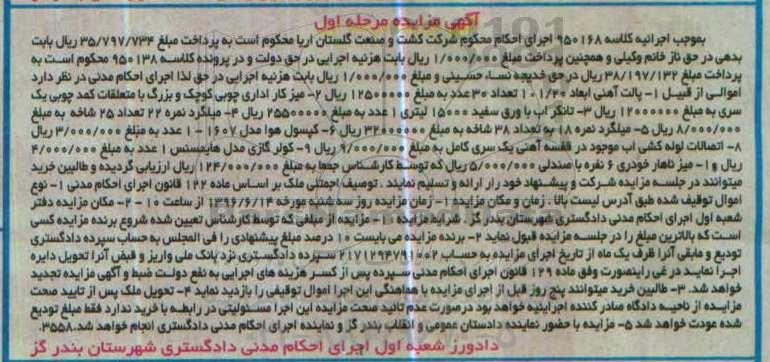 آگهی مزایده مرحله اول
بموجب اجرائیه کلاسه ۹۵۰۱۶۸ اجرای احکام محکوم شرکت کشت و صنعت گلستان اریا محکوم است به پرداخت مبلغ ۳۵/۷۹۷/۷۳۴ ریال بابت
بدهی در حق ناز خانم وکیلی و همچنین پرداخت مبلغ ۱/۰۰۰/۰۰۰ ریال بابت هزینه اجرایی در حق دولت و در پرونده کلاسه ۹۵۰۱۳۸ محکوم است به
پرداخت مبلغ ۳۸/۱۹۷/۱۳۲ ریال در حق خدیجه نساء حسینی و مبلغ ۱/۰۰۰/۰۰۰ ریال بابت هزینه اجرایی در حق لذا اجرای احکام مدنی در نظر دارد
اموالی از قبیل ۱- پالت آهنی ابعاد ۱/۲۰*۱ تعداد ۳۰ عدد به مبلغ ۱۲۵۰۰۰۰۰ ریال ۲- میز کار اداری چوبی کوچک و بزرگ با متعلقات کمد چوبی یک
سری به مبلغ ۱۲۰۰۰۰۰۰ ریال ۳- تانکر آب با ورق سفید ۱۵۰۰۰ لیتری ۱ عدد به مبلغ ۲۵۵۰۰۰۰۰ ریال ۴- میلگرد نمره ۲۲ تعداد ۲۵ شاخه به مبلغ
۸/۰۰۰/۰۰۰ ریال ۵- میلگرد نمره ۱۸ به تعداد ۳۸ شاخه به مبلغ ۳۲۰۰۰۰۰۰ ریال ۶- کپسول هوا مدل ۱۶۰۷ - ۱ عدد به مبلغ ۳/۰۰۰/۰۰۰ ریال
۸- اتصالات لوله کشی اب موجود در قفسه آهنی یک سری کامل به مبلغ ۹/۰۰۰/۰۰۰ ریال ۹- کولر گازی مدل هایسنس ۱ عدد به مبلغ ۴/۰۰۰/۰۰۰
ریال و۱- میز ناهار خودری ۶ نفره با صندلی ۵/۰۰۰/۰۰۰ ریال که توسط کارشناس جمعا به مبلغ ۱۲۴/۰۰۰/۰۰۰ ریال ارزیابی گردیده و طالبین خرید
میتوانند در جلسه مزایده شرکت و پیشنهاد خود را ارائه و تسلیم نمایند . توصیف اجمالی ملک بر اساس ماده ۱۲۲ قانون اجرای احکام مدنی ۱- نوع
اموال توقیف شده طبق آدرس لیست بالا . زمان و مکان مزایده ۱- زمان مزایده روز سه شنبه مورخه ۱۳۹۶/۶/۱۴ از ساعت ۱۰ - ۲- مکان مزایده دفتر
شعبه اول اجرای احکام مدنی دادگستری شهرستان بندر گز . شرایط مزایده ۱- مزایده از مبلغی که توسط کارشناس تعیین شده شروع برنده مزایده کسی
است که بالاترین مبلغ را در جلسه مزایده قبول نماید ۲- برنده مزایده می بایست ۱۰ درصد مبلغ پیشنهادی را فی المجلس به حساب سپرده دادگستری
تودیع و مابقی آنرا ظرف یک ماه از تاریخ اجرای مزایده به حساب ۲۱۷۱۲۹۴۷۹۱۰۰۲ سپرده دادگستری نزد بانک ملی واریز و قبض آنرا تحویل دایره
اجرا نماید در غی راینصورت وفق ماده ۱۲۹ قانون اجرای احکام مدنی سپرده پس از کسر هزینه های اجرایی به نفع دولت ضبط و آگهی مزایده تجدید
خواهد شد. ۳- طالبین خرید میتوانند پنج روز قبل از اجرای مزایده با هماهنگی این اجرا اموال توقیفی را بازدید نماید ۴- تحویل ملک پس از تایید صحت
مزایده از ناحیه دادگاه صادر کننده اجرائیه خواهد بود درصورت عدم تائید صحت مزایده این اجرا مسئولیتی در رابطه با خرید ندارد فقط مبلغ تودیع
شده عودت خواهد شد ۵- مزایده با حضور نماینده دادستان عمومی و انقلاب بندر گز و نماینده اجرای احکام مدنی دادگستری انجام خواهد شد.۳۵۵۸
دادورز شعبه اول اجرای احکام مدنی دادگستری شهرستان بندر گز